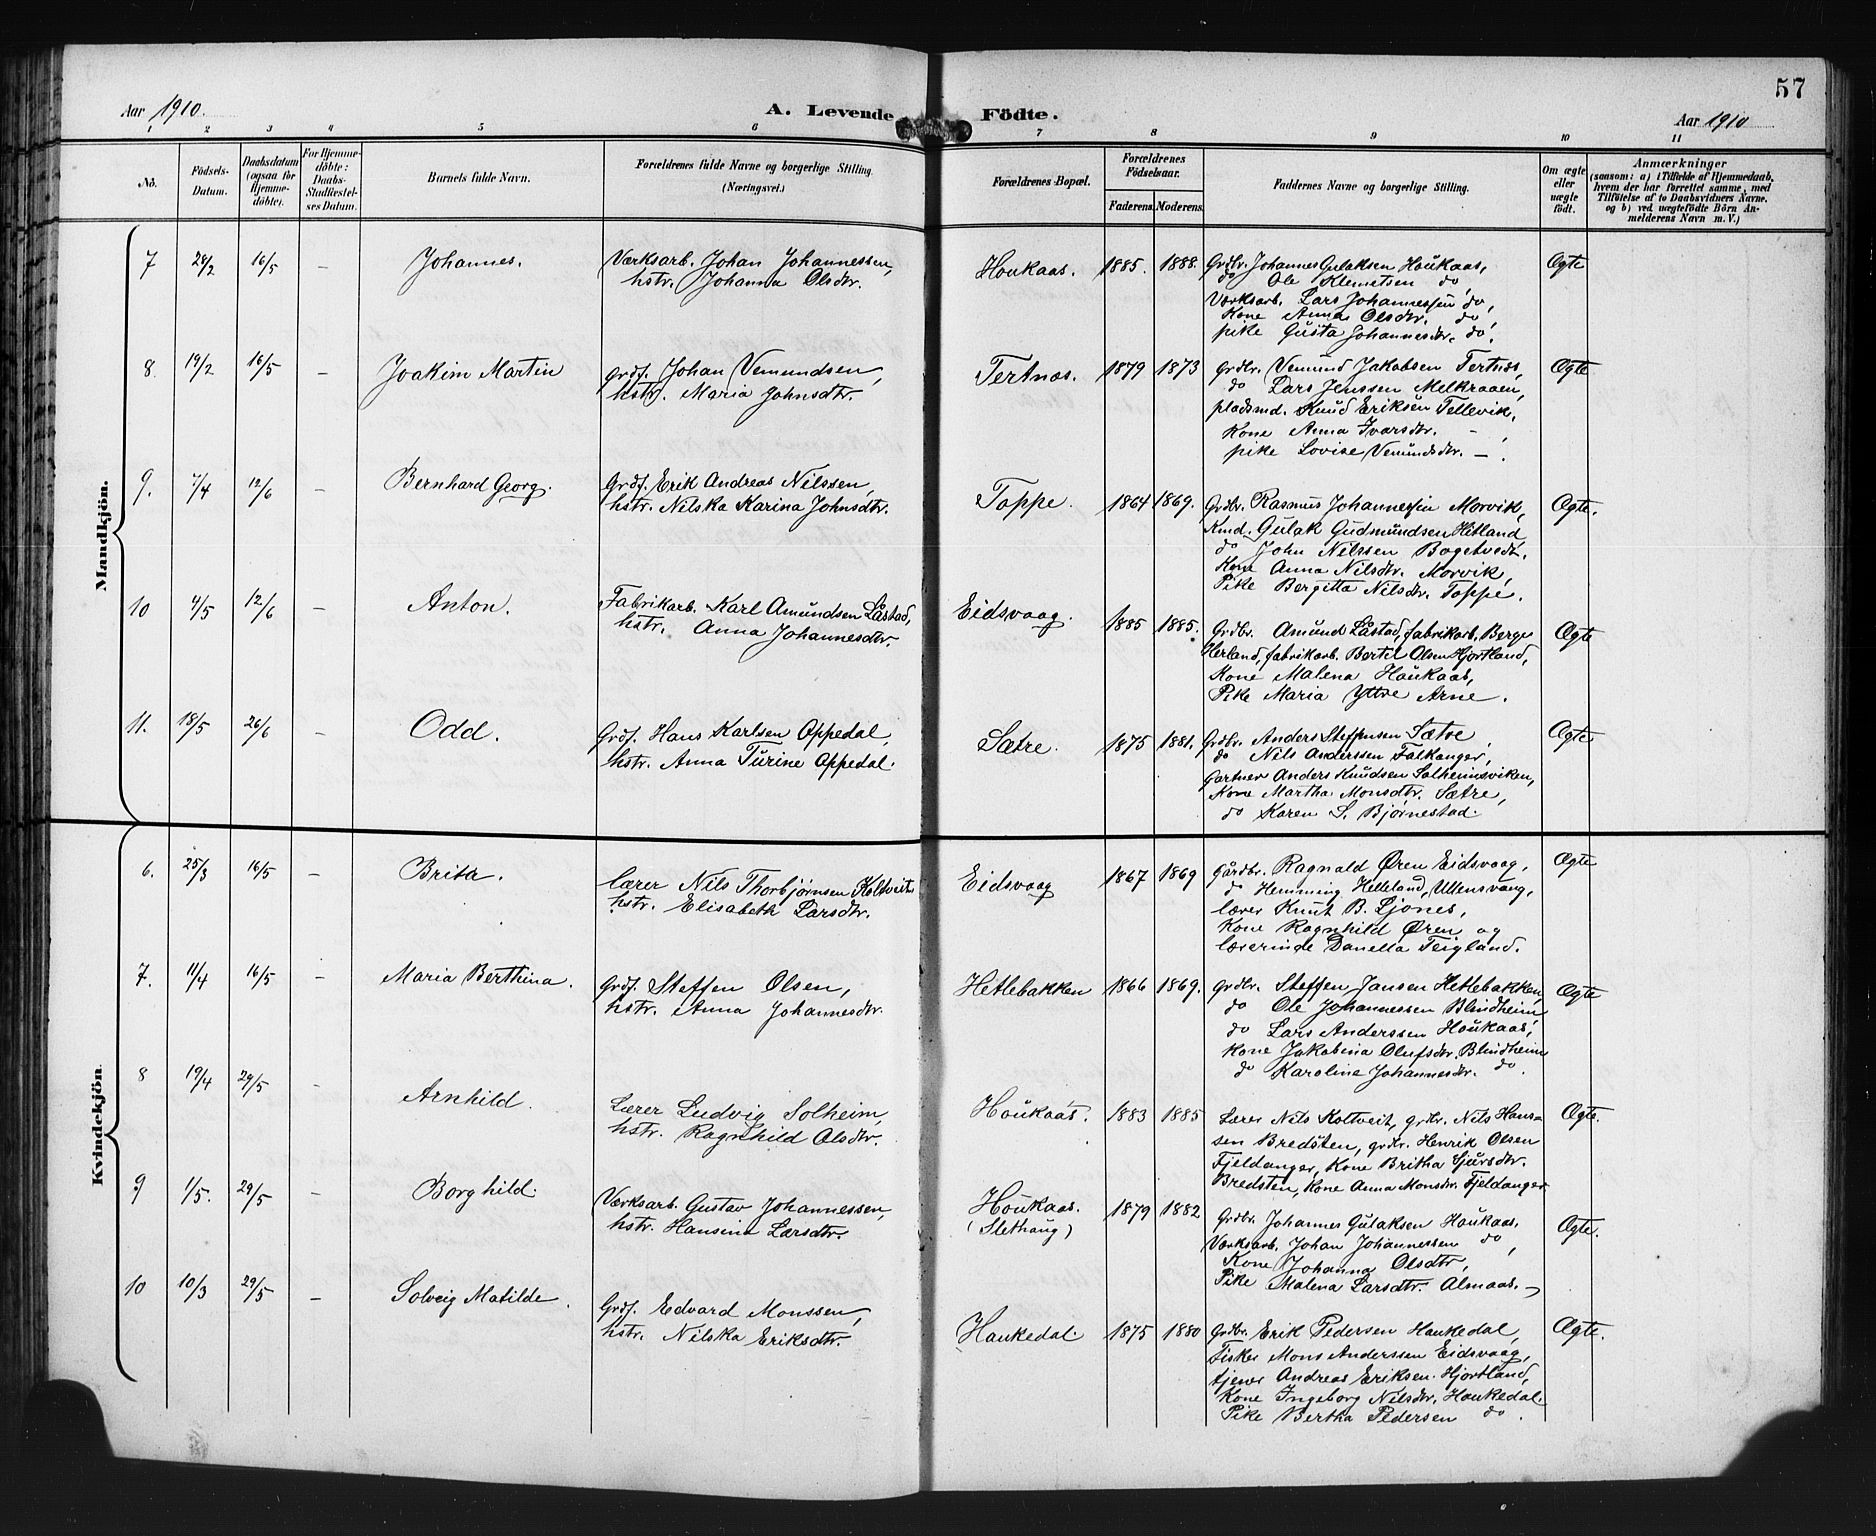 57
Aar 1910.
A. Levende Födte.
Aar 1910
1 2 3 4 5 6 7 8 9 10 11
No.
Födsels-
Datum.
Daabsdatum
(ogsaa for
Hjemme-
döbte).
For Hjemme-
döbte:
Daabs-
Stadfæstel-
ses Datum.
Barnets fulde Navn.
Forældrenes fulde Navne og borgerlige Stilling.
(Næringsvei.)
Forældrenes Bopæl.
Forældrenes
Födselsaar.
Faderens. Moderens.
Faddernes Navne og borgerlige Stilling.
Om ægte
eller
uægte
födt.
Anmærkninger
(saasom: a) i Tilfælde af Hjemmedaab,
hvem der har forrettet samme, med
Tilföielse af to Daabsvidners Navne.
og b) ved uægtefödte Börn An-
melderens Navn m. V.)
Mandkjön.
7 28/2 16/5 – Johannes. Værksarb. Johan Johannessen,
hstr. Johanna Olsdtr.
Houkaas. 1885. 1888. Grdbr. Johannes Gulaksen Houkaas,
do Ole Klemetsen do,
Værksarb. Lars Johannessen do,
Kone Anna Olsdtr. do,
pike Gusta Johannesdtr. do.
Ægte
8. 19/2 16/5 – Joakim Martin grdf. Johan Vemundsen,
hstr. Maria Johnsdtr.
Tertnæs. 1879 1873 grdbr. Vemund Jakobsen Tertnæs,
do Lars Jenssen Melkraaen,
pladsmd. Knud Eriksen Tellevik,
Kone Anna Ivarsdtr. – ,
pike Lovise Vemundsdtr. – .
Ægte
9. 7/4 12/6 – Bernhard Georg. Grdf. Erik Andreas Nilssen,
hstr. Nilska Karina Johnsdtr.
Toppe. 1864 1869. Grdbr. Rasmus Johannessen Morvik,
Kmd. Gulak Gudmundsen Hitland,
do John Nilssen Bogetvedt.
Kone Anna Nilsdtr. Morvik,
Pike Bergitta Nilsdtr. Toppe.
Ægte.
10 4/5 12/6 – Anton. Fabrikarb. Karl Amundsen Låstad,
hstr. Anna Johannesdtr.
Eidsvaag. 1885 1885. Grdbr. Amund Låstad, fabrikarb. Berge
Herland, fabrikarb. Bertel Olsen Hjortland,
Kone Malena Houkaas,
Pike Maria Yttre Arne.
Ægte
11. 18/5 26/6 – Odd. Grdf. Hans Karlsen Oppedal,
hstr. Anna Turine Oppedal.
Sætre. 1875 1881. Grdbr. Anders Steffensen Sætre,
do Nils Anderssen Falkanger,
Gartner Anders Knudsen Solheimsviken,
Kone Martha Monsdtr. Sætre,
do Karen S. Bjørnestad.
Ægte
Kvindekjön.
6. 25/3 16/5 – Brita. lærer Nils Thorbjørnsen Koltveit,
hstr. Elisabeth Larsdtr.
Eidsvaag 1867 1869 gårdbr. Ragnald Øren Eidsvaag,
do Hemming Helleland, Ullensvang,
lærer Knut B. Ljones,
Kone Ragnhild Øren og
lærerinde Danella Teigland.
Ægte
7. 11/4 16/5 – Maria Berthina. grdf. Steffen Olsen,
hstr. Anna Johannesdtr.
Hetlebakken 1866 1869. grdbr. Steffen Jansen Hetlebakken,
do Ole Johannessen Blindheim
do Lars Anderssen Houkaas,
Kone Jakobina Olufsdtr. Blindheim
do Karoline Johannesdtr. do.
Ægte
8 19/4 29/5 – Arnhild. Lærer Ludvig Solheim,
hstr. Ragnhild Olsdtr.
Houkaas. 1883 1885 Lærer Nils Koltveit, grdbr. Nils Hans-
sen Bredsten, grdbr. Henrik Olsen
Fjeldanger, Kone Britha Sjursdtr.
Bredsten, Kone Anna Monsdtr. Fjeldanger
Ægte.
9 1/5. 29/5 – Borghild. Værksarb. Gustav Johannessen,
hstr. Hansina Larsdtr.
Houkaas.
(Slethaug)
1879 1882 Grdbr. Johannes Gulaksen Houkaas.
Værksarb. Johan Johannessen do,
Kone Johanna Olsdtr,
Pike Malena Larsdtr. Almaas. –
Ægte.
10 10/3 29/5 – Solveig Matilde. Grdf. Edvard Monssen,
hstr. Nilska Eriksdtr.
Haukedal. 1875 1880 Grdbr. Erik Pedersen Haukedal,
Fisker Mons Anderssen Eidsvaag,
tjener Andreas Eriksen Hjortland,
Kone Ingeborg Nilsdtr. Haukedal.
Pike Bertha Pedersen do.
Ægte.